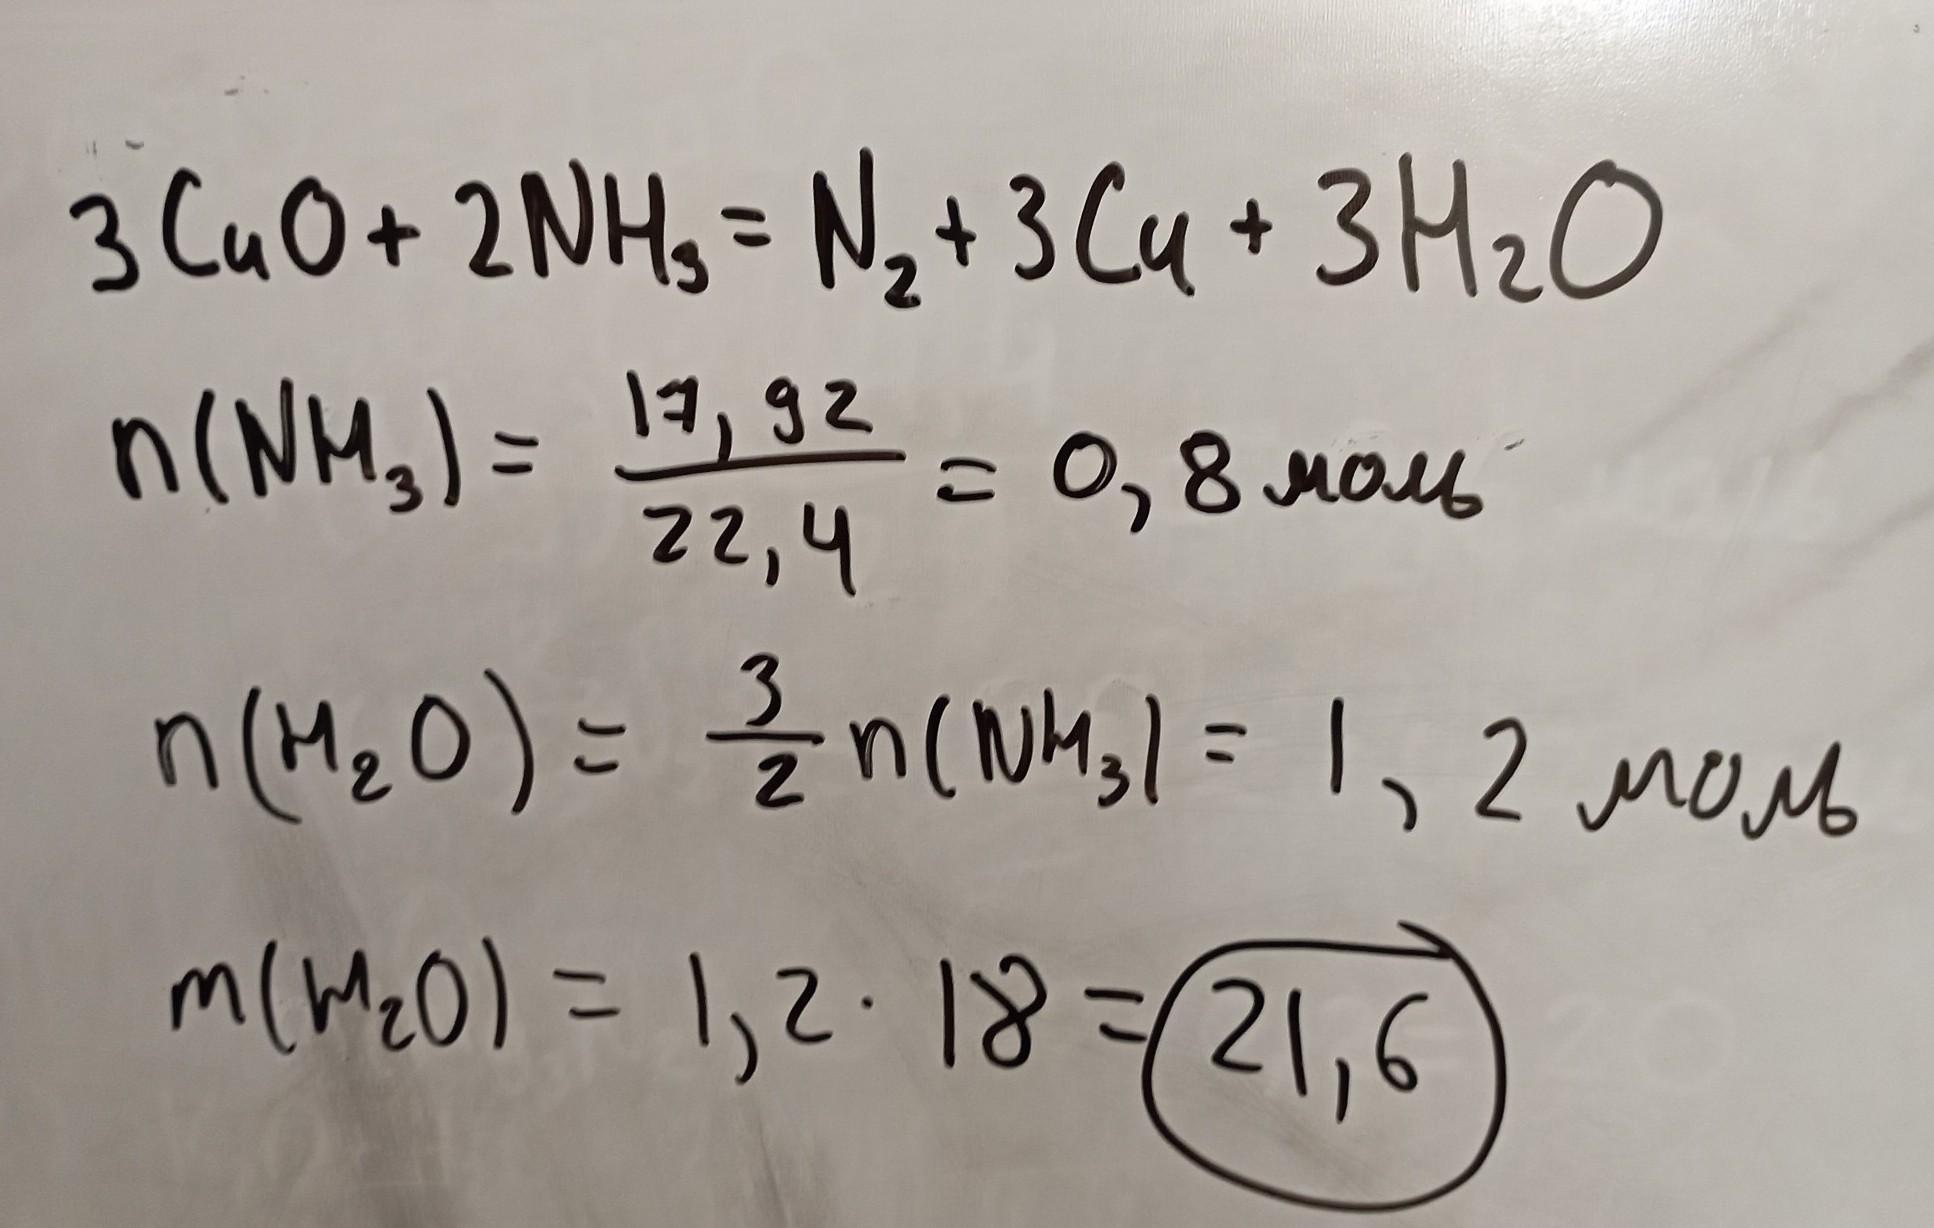 3CuO + 2NH₃ = N₂ + 3Cu + 3H₂O
n(NH₃) = 17,92 / 22,4 = 0,8 моль
n(H₂O) = 3/2 n(NH₃) = 1,2 моль
m(H₂O) = 1,2 · 18 = 21,6